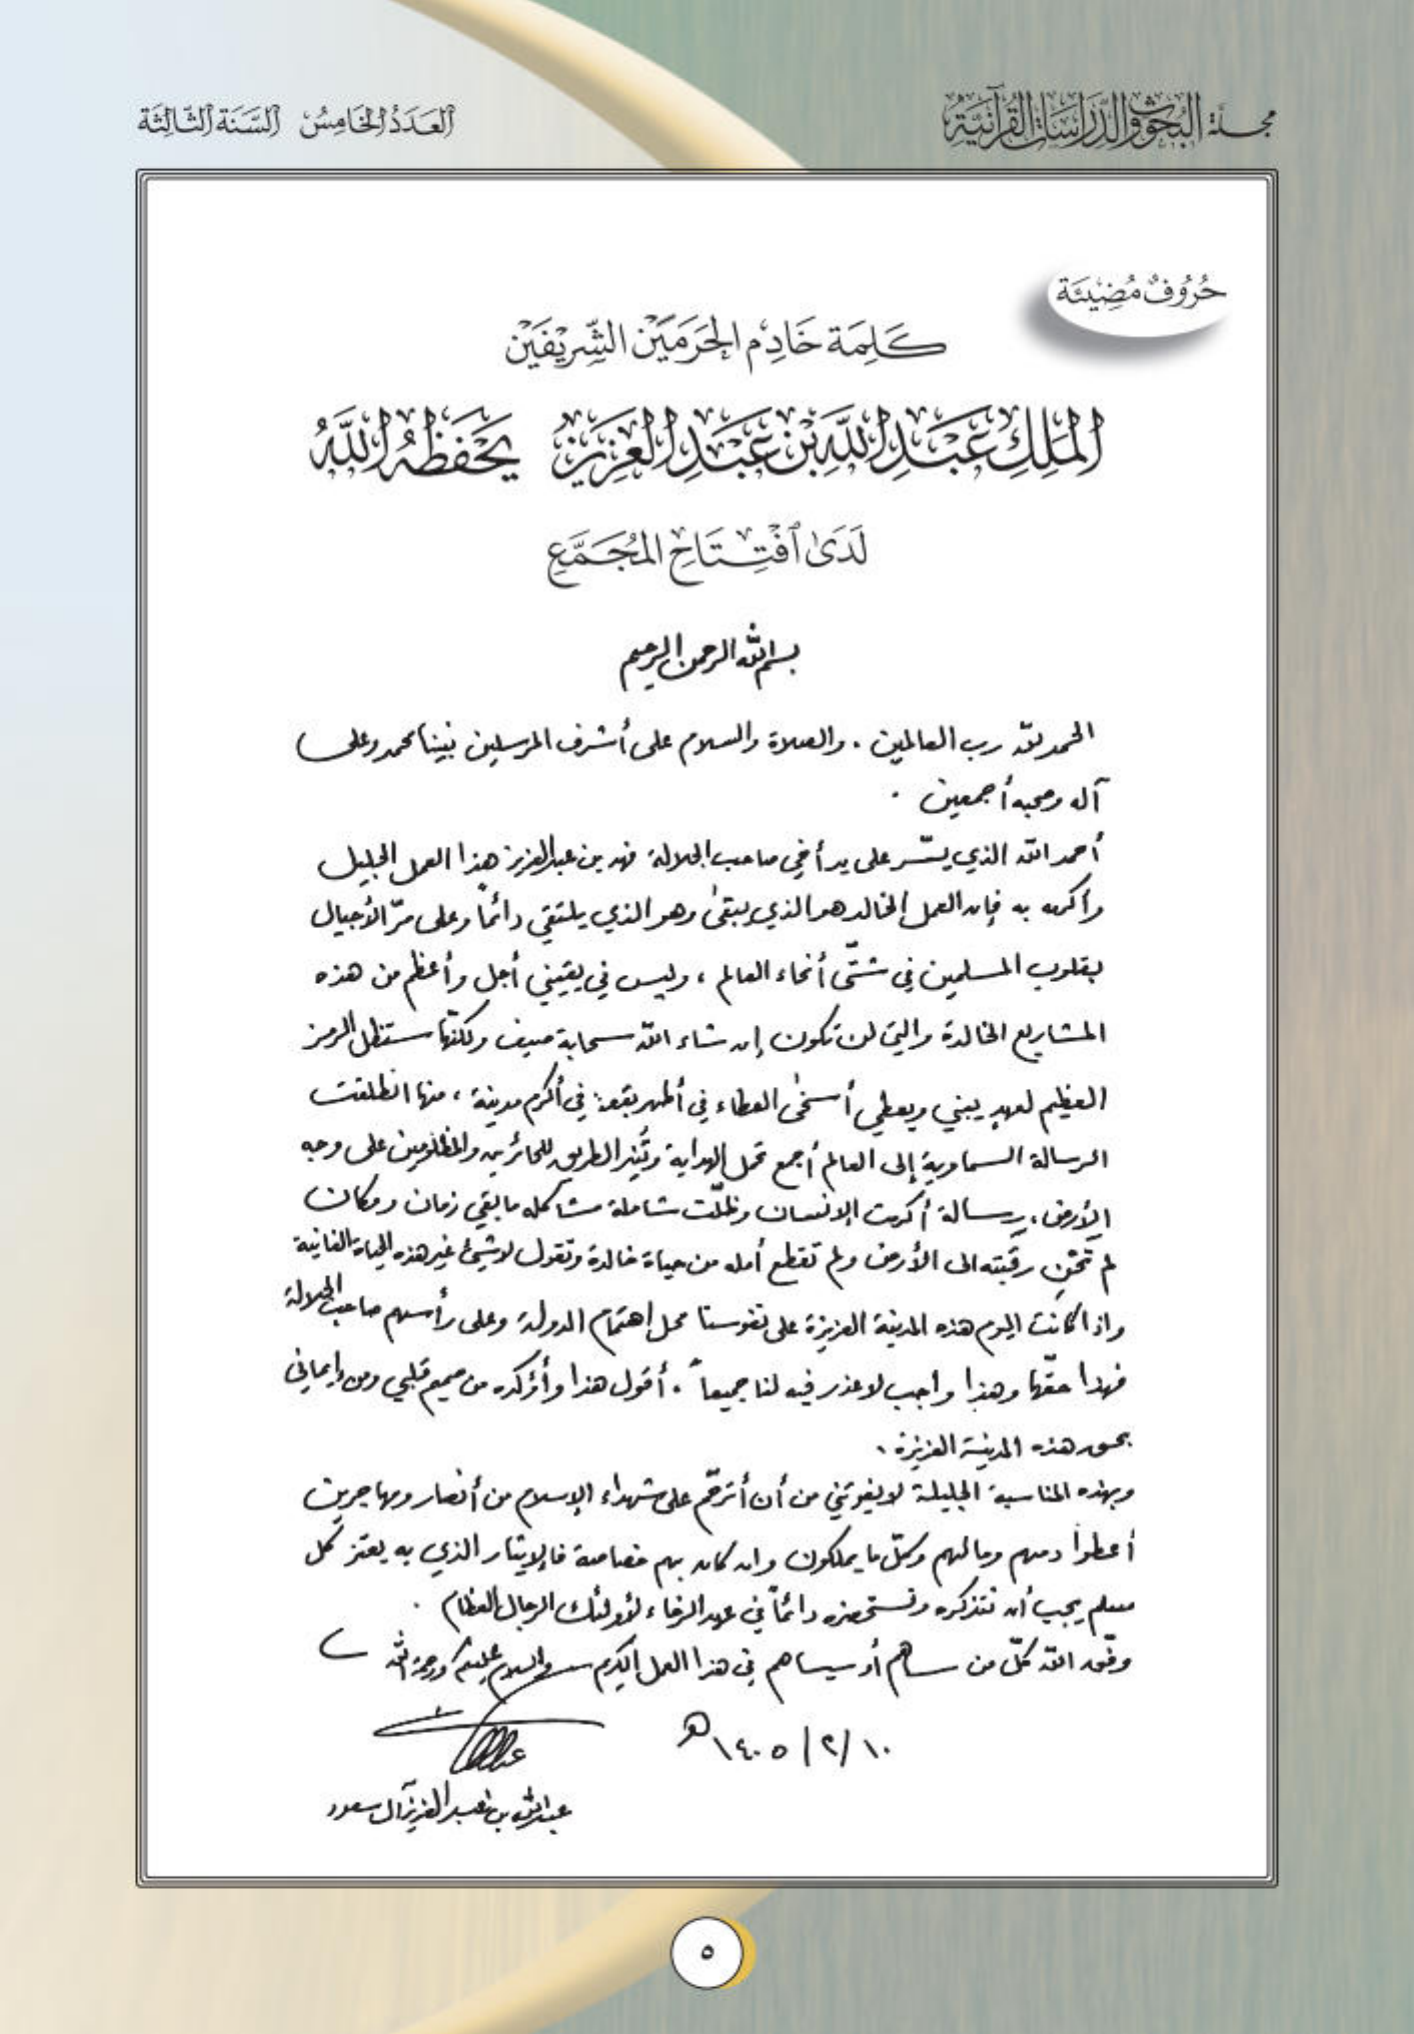 مجلة البحوث والدراسات القرآنية
العَدَدُ الخَامِسُ السَّنَة الثَّالِثَة
حُرُوفٌ مُضِيئَة
كَلِمَة خَادِم الحَرَمَيْن الشَّرِيْفَيْن
المَلِكِ عَبْدِ اللَّه بْن عَبْدِ العَزِيْزِ يَحْفَظُهُ اللَّهُ
لَدَىٰ ٱفْتِتَاحِ المُجَمَّعِ
بسم الله الرحمن الرحيم
الحمد لله رب العالمين . والصلاة والسلام على أشرف المرسلين نبينا محمد وعلى
آله وصحبه أجمعين .
أحمد الله الذي يسّر على يد أخي صاحب الجلالة فهد بن عبدالعزيز هذا العمل الجليل
وأكرمه به فإن العمل الخالد هو الذي يبقى وهو الذي يلتقي دائماً وعلى مرّ الأجيال
بقلوب المسلمين في شتّى أنحاء العالم ، وليس في يقيني أجل وأعظم من هذه
المشاريع الخالدة والتي لن تكون إن شاء الله سحابة صيف ولكنّها ستظل الرمز
العظيم لعهدٍ يبني ويعطي أسخى العطاء في أطهر بقعة في أكرم مدينة ، منها انطلقت
الرسالة السماوية إلى العالم أجمع تحمل الهداية وتُنير الطريق للحائرين والمظلومين على وجه
الأرض ، رسالة أكرمت الإنسان وظلّت شاملة مشاكله ما بقي زمان ومكان
لم تحْنِ رقبته الى الأرض ولم تقطع أمله من حياة خالدة وتقول لا شيئ غير هذه الحياة الفانية
واذا كانت اليوم هذه المدينة العزيزة على نفوسنا محل اهتمام الدولة وعلى رأسهم صاحب الجلالة
فهذا حقّها وهذا واجب لا عذر فيه لنا جميعاً . أقول هذا وأؤكده من صميم قلبي ومن إيماني
بحق هذه المدينة العزيزة .
وبهذه المناسبة الجليلة لا يفوتني من أن أترحّم على شهداء الإسلام من أنصار ومهاجرين
أعطوا دمهم ومالهم وكلّ ما يملكون وان كان بهم خصاصة فالإيثار الذي به يعتز كل
مسلم يجب أن نتذكره ونستحضره دائماً في عهد الرخاء لأولئك الرجال العظام .
وفّق الله كلّ من ساهم أو سيساهم في هذا العمل الكريم والسلام عليكم ورحمة الله
١٤٠٥/٢/١٠هـ
عبدالله بن عبدالعزيز آل سعود
٥